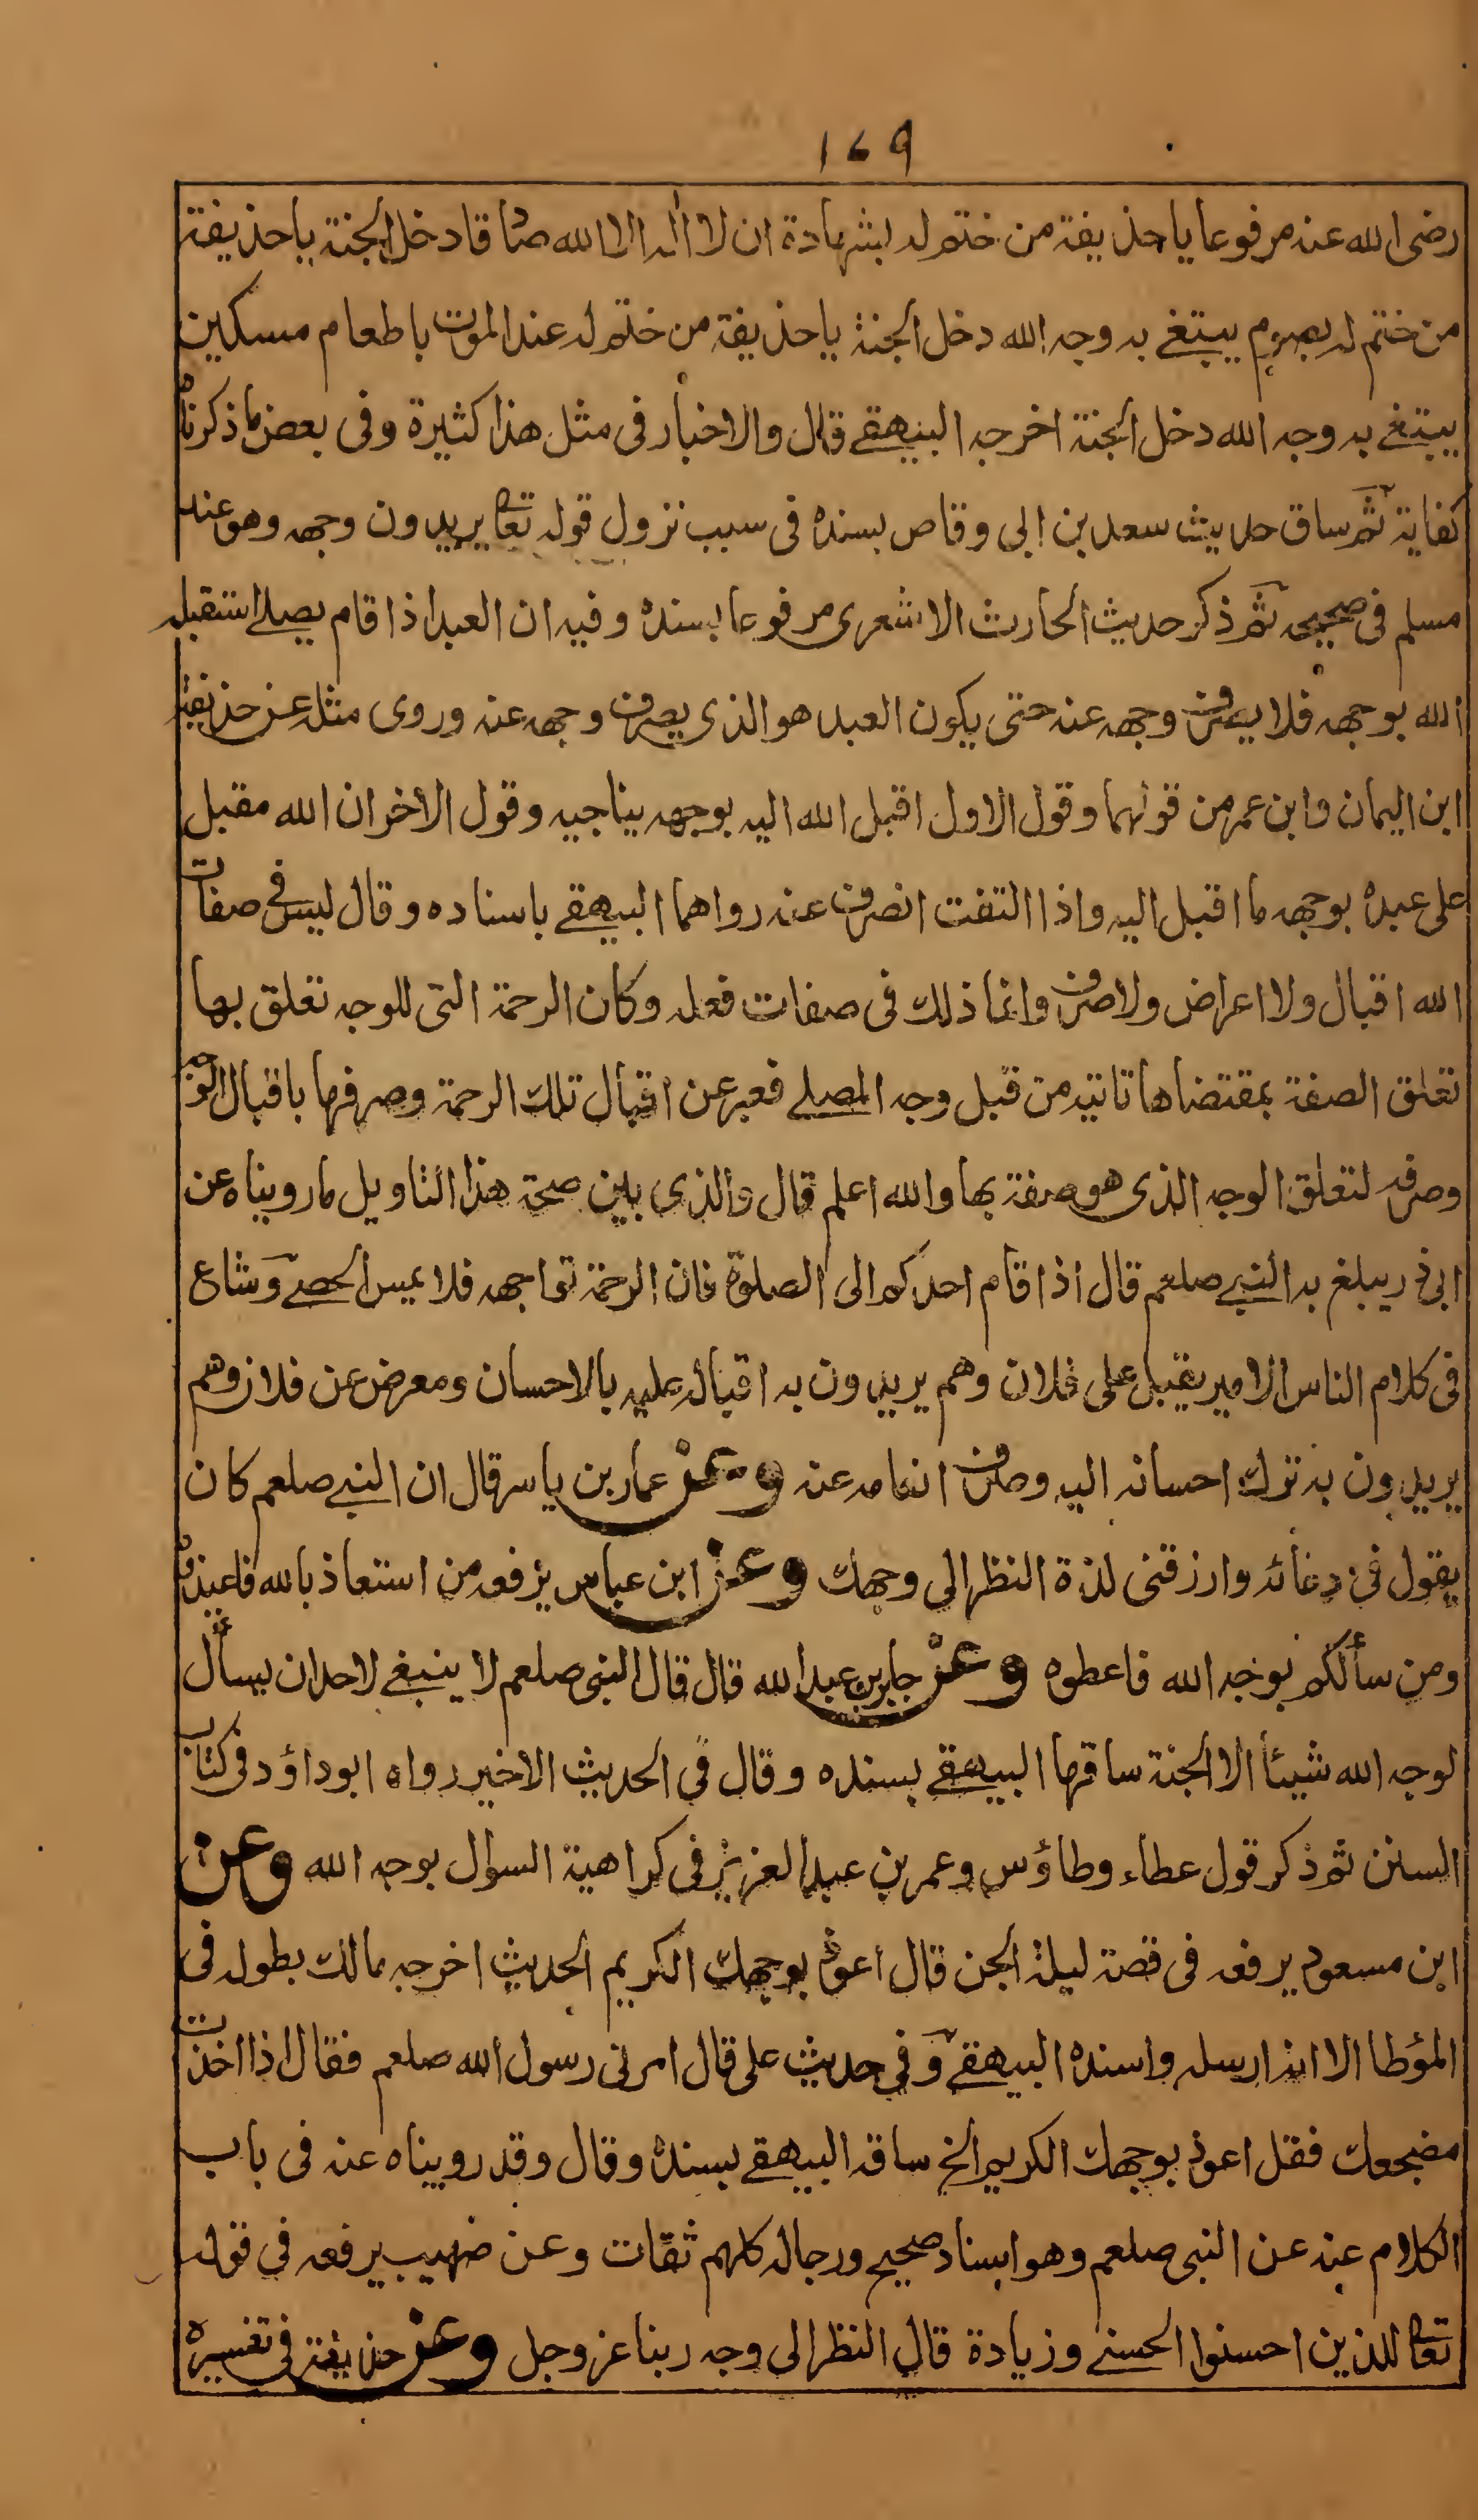 ۱۷۹
رضی الله عنه مرفوعا یا حذیفة من ختم له بشهادة ان لا اله الا الله صادقا دخل الجنة یا حذیفة
من ختم له بصوم یبتغی به وجه الله دخل الجنة یا حذیفة من ختم له عند الموت باطعام مسکین
یبتغے به وجه الله دخل الجنة اخرجه البیهقے قال والاخبار فی مثل هذا کثیرة وفی بعض ما ذکرناه
کفایة ثم ساق حدیث سعد بن ابی وقاص بسنده فی سبب نزول قوله تعا یریدون وجهه وهو عند
مسلم فی صحیحه ثم ذکر حدیث الحارث الاشعری مرفوعا بسنده وفیه ان العبد اذا قام یصلے استقبله
الله بوجهه فلا یصرف وجهه عنه حتی یکون العبد هو الذی یصرف وجهه عنه وروی مثله عن حذیفة
ابن الیمان وابن عمر من قولهما وقول الاول اقبل الله الیه بوجهه یناجیه وقول الاخر ان الله مقبل
علی عبده بوجهه ما اقبل الیه واذا التفت انصرف عنه رواهما البیهقے باسناده وقال لیس فی صفات
الله اقبال ولا اعراض ولا صرف وانما ذلك فی صفات فعله وکان الرحمة التی للوجه تعلق بها
تعلق الصفة بمقتضاها تاتیه من قبل وجه المصلے فعبر عن اقبال تلك الرحمة وصرفها باقبال الوجه
وصرفه لتعلق الوجه الذی هو صفة بها والله اعلم قال والذی یبین صحة هذا التاویل ما رویناه عن
ابی ذر یبلغ به النبے صلعم قال اذا قام احدکم الی الصلوة فان الرحمة تواجهه فلا یمس الحصے وشاع
فی کلام الناس الامیر یقبل علی فلان وهم یریدون به اقباله علیه بالاحسان ومعرض عن فلان وهم
یریدون به ترك احسانه الیه وصرف انعامه عنه وعن عمار بن یاسر قال ان النبے صلعم کان
یقول فی دعائه وارزقنی لذة النظر الی وجهك وعن ابن عباس یرفعه من استعاذ بالله فاعیذوه
ومن سألکم بوجه الله فاعطوه وعن جابر بن عبد الله قال قال النبی صلعم لا ینبغے لاحد ان یسأل
لوجه الله شیئا الا الجنة ساقها البیهقے بسنده وقال فی الحدیث الاخیر رواه ابو داؤد فی کتاب
السنن ثم ذکر قول عطاء وطاؤس وعمر بن عبد العزیز فی کراهیة السؤال بوجه الله وعن
ابن مسعود یرفعه فی قصة لیلة الجن قال اعوذ بوجهك الکریم الحدیث اخرجه مالك بطوله فی
المؤطا الا انه ارسله واسنده البیهقے وفی حدیث علی قال امرنی رسول الله صلعم فقال اذا اخذت
مضجعك فقل اعوذ بوجهك الکریم الخ ساقه البیهقے بسنده وقال وقد رویناه عنه فی باب
الکلام عنه عن النبی صلعم وهو اسناد صحیح ورجاله کلهم ثقات وعن صهیب یرفعه فی قوله
تعا للذین احسنوا الحسنے وزیادة قال النظر الی وجه ربنا عز وجل وعن حذیفة فی تفسیره